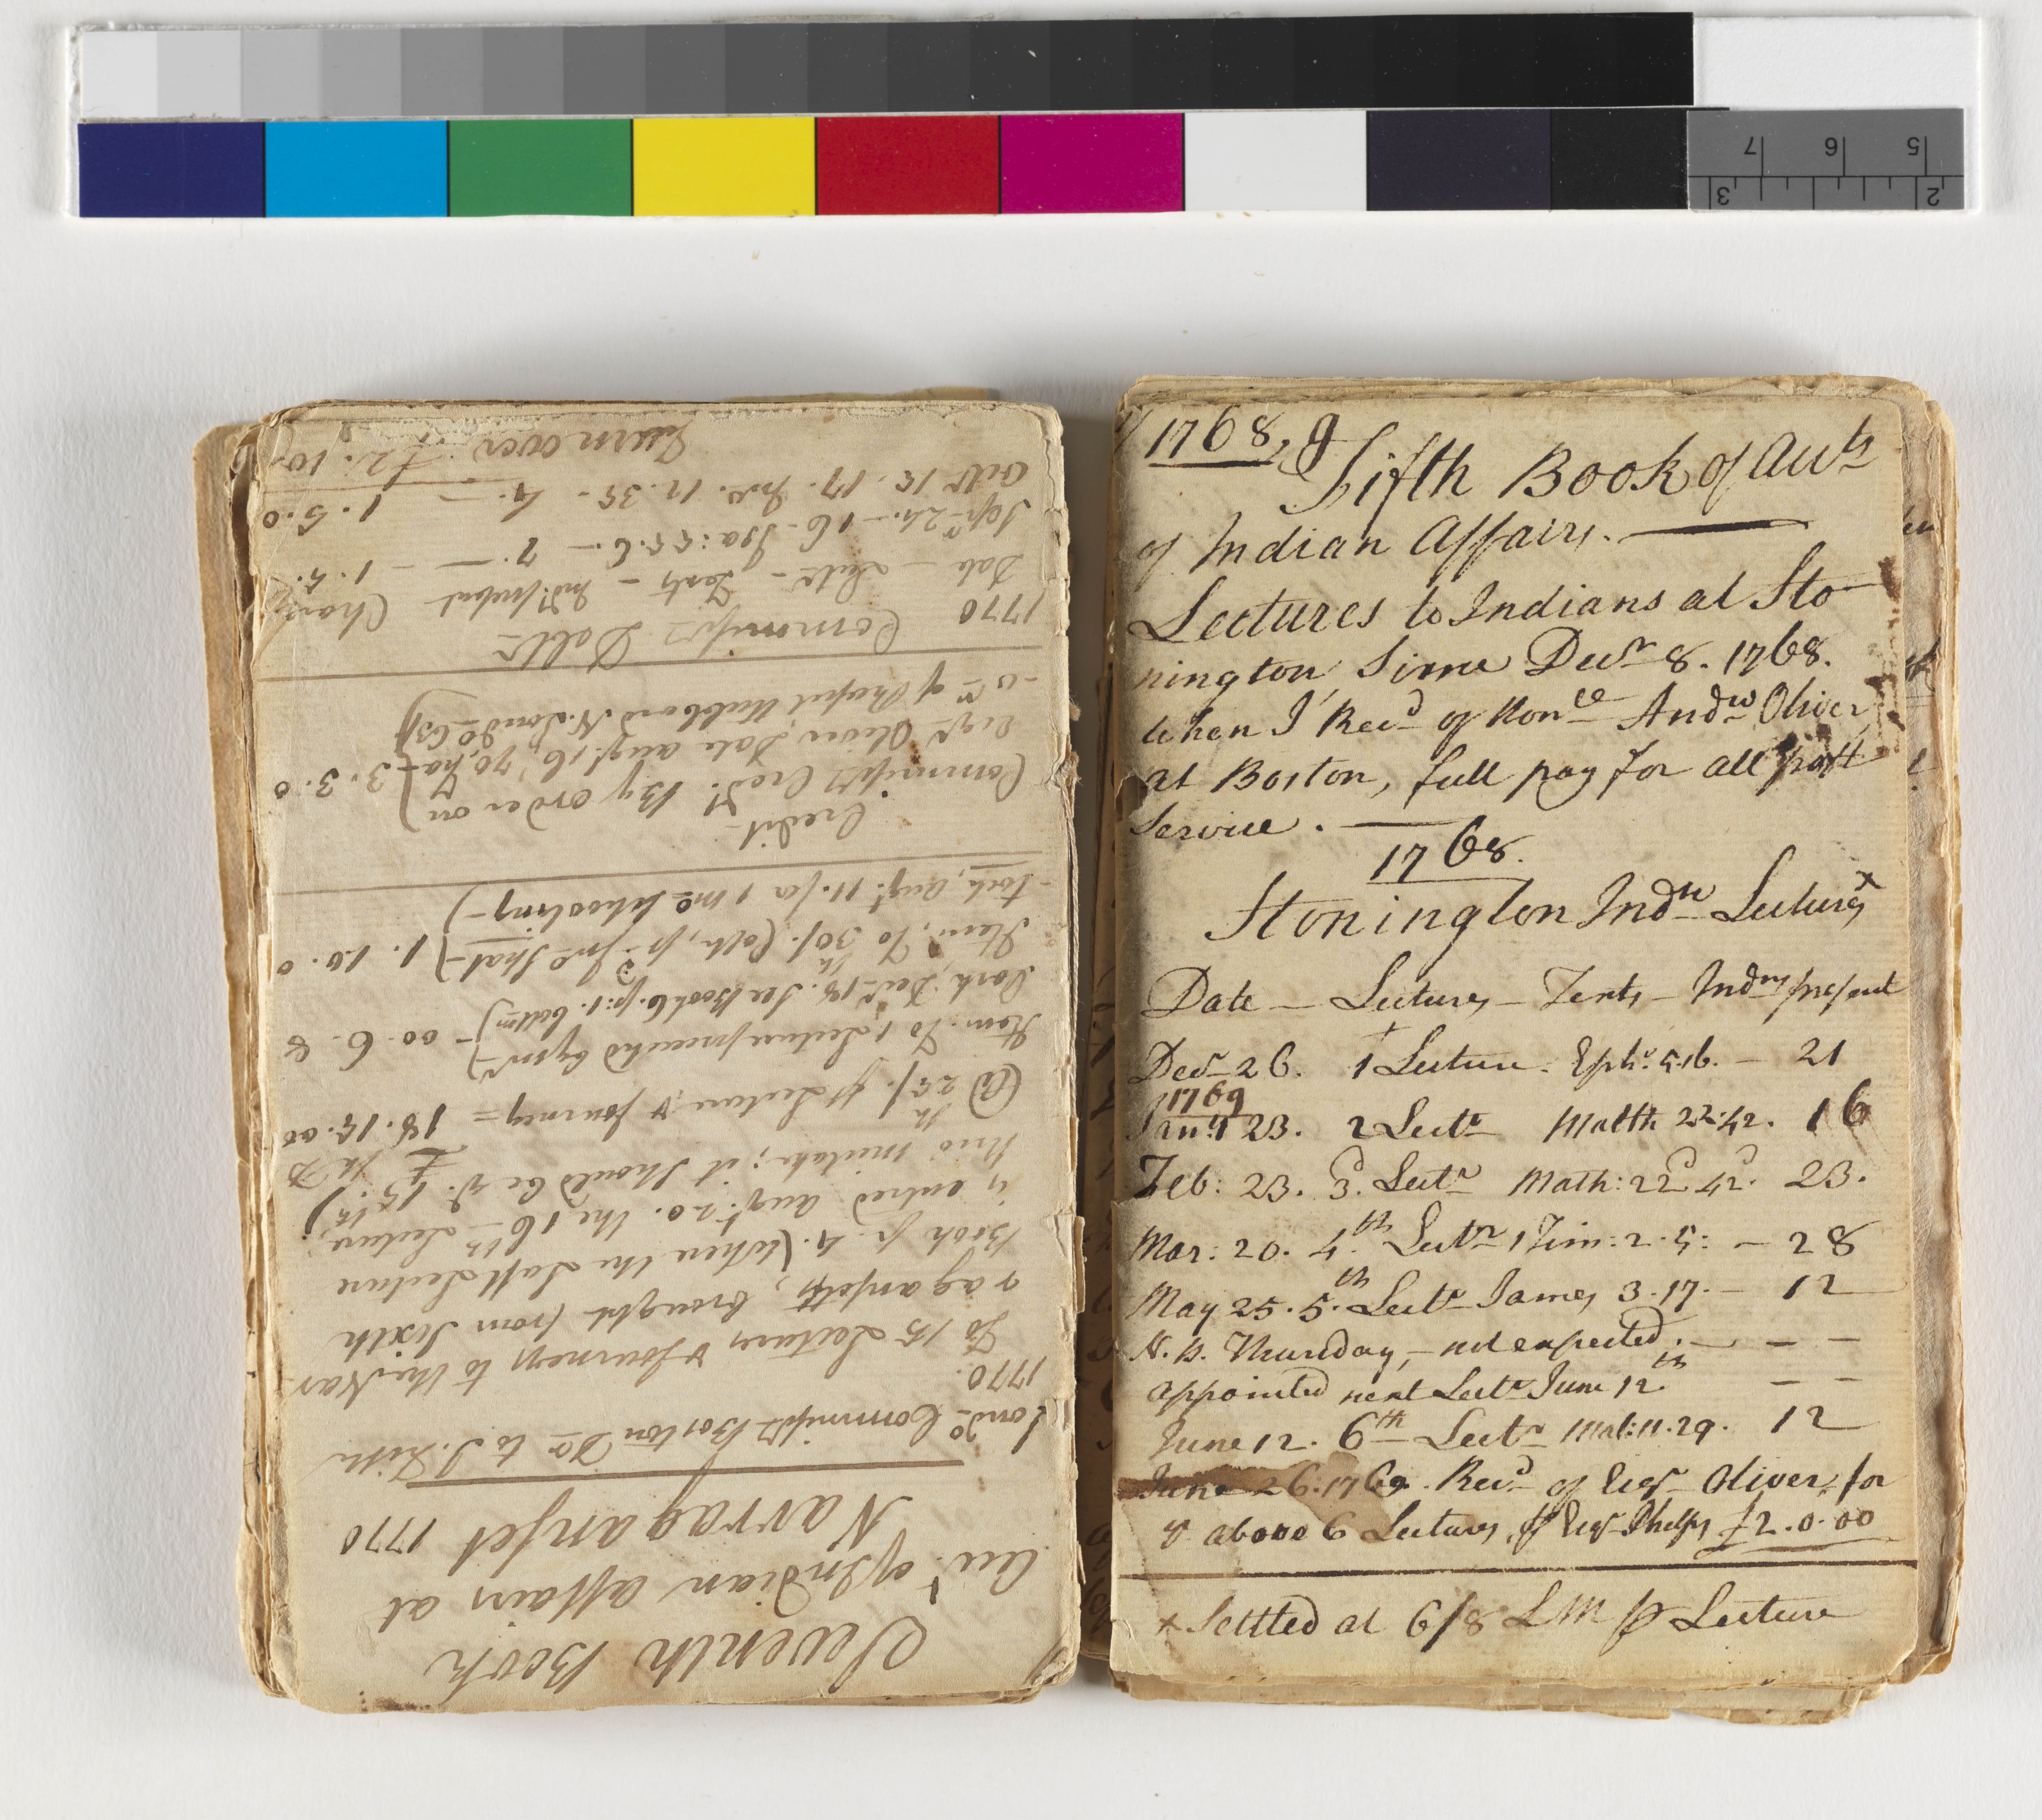 Seventh Book
Acct. of Indian affairs at
Narraganset 1770
Lond.o Commiss.rs Boston Dr. to J. Fish
1770.
To 15 Lectures & Journeys to the Nar-
raganfetts, brought from Sixth
Book p. 4. (When the Last Lecture
is entred Augt. 20. the 16th Lecture,
thro' mistake; it Should be ye. 15th.)
@ 25/. pr Lecture & Journey = 18.15.00
Item. To 1 Lecture preached by mr
Park, Decr. 18. See Book 6. p. 1. bottm) - 00.6.8
Item, To 30/. 1.10.0
tock, Augt. 11. for 1 mo. Schooling -)
Credit
Commiss.rs Cred.t By order on
Esqr. Oliver Date Augt. 16, '70, 3.3.0
of Hubbard N. Lond.o
Commiss.rs Debtr.
1770
Date - Lectr. - Texts - Indns. present Charge
Sepr. 24. - 16 - Isa: 55.6. - 7. - - 1.5.
Octr. 15. 17. Jno. 12.35 - 4. - 1.5.0
Turn over £2.10
1768, 9
Fifth Book of Accts
of Indian Affairs.
Lectures to Indians at Sto-
nington Since Decr. 8. 1768.
when I Recd. of Honble Andw. Oliver,
at Boston, full pay for all past
Service.
1768.
Stonington Indn. Lectures x
Date - Lectures - Texts - Indns present
Decr 26. 1 Lecture. Eph: 5.16. - 21
1769
Jany 23. 2 Lectr Matth 22.42. 16
Feb: 23. 3d. Lectr Math: 22d 42d. 23.
Mar: 20. 4.th Lectr 1 Tim: 2.5: - 28
May 25. 5.th Lectr James 3.17. - 12
N.B. Thursday, - not expected. - - -
appointed next Lectr June 12.th - -
June 12. 6th Lectr Mat: 11.29. 12
June 26. 1769. Recd of Esqr Oliver, for
ye above 6 Lectures, pr Esqr Phelps £2.0.00
x Settled at 6/8 LM pr Lecture